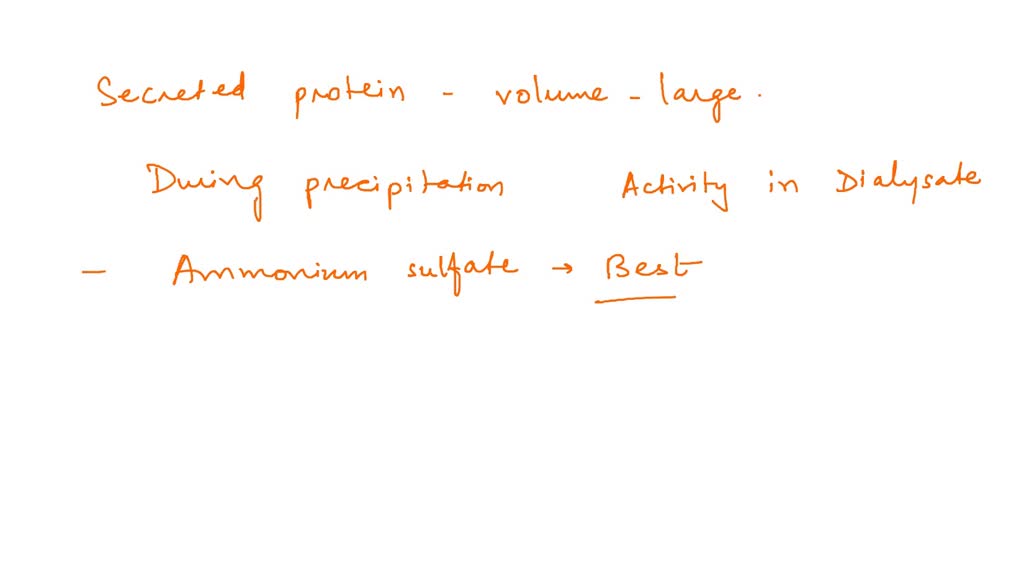 Secreted protein - volume - large.
During precipitation Activity in Dialysate
- Ammonium sulfate → Best